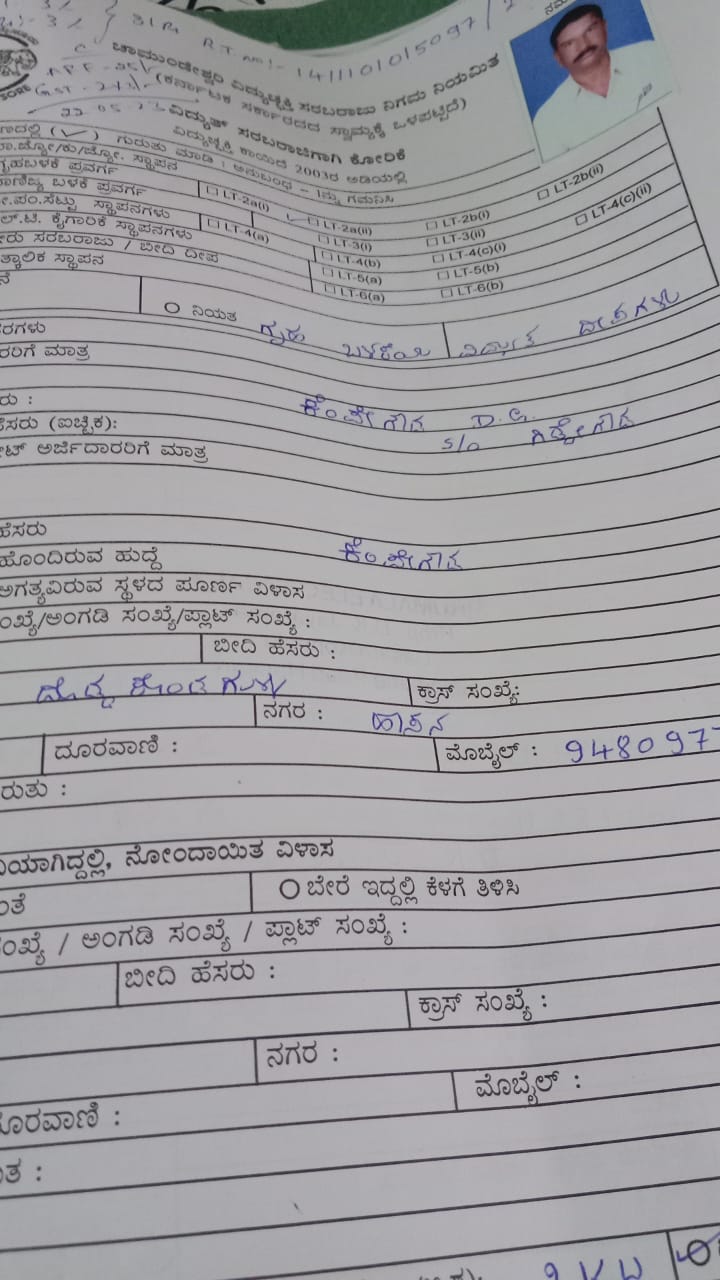 R.T. no:- 141110101 5097/
ಚಾಮುಂಡೇಶ್ವರಿ ವಿದ್ಯುಚ್ಛಕ್ತಿ ಸರಬರಾಜು ನಿಗಮ ನಿಯಮಿತ
(ಕರ್ನಾಟಕ ಸರ್ಕಾರದ ಸ್ವಾಮ್ಯಕ್ಕೆ ಒಳಪಟ್ಟಿದೆ)
ವಿದ್ಯುತ್ ಸರಬರಾಜಿಗಾಗಿ ಕೋರಿಕೆ
ವಿದ್ಯುಚ್ಛಕ್ತಿ ಕಾಯಿದೆ 2003ರ ಅಡಿಯಲ್ಲಿ
(✓) ಗುರುತು ಮಾಡಿ : ಅನುಬಂಧ - 1ನ್ನು ಗಮನಿಸಿ
ಸ್ಥಾಪನ
ಗೃಹಬಳಕೆ ಪ್ರವರ್ಗ
ಬಳಕೆ ಪ್ರವರ್ಗ ☐ LT-2a(i) ☐ LT-2a(ii) ☐ LT-2b(i) ☐ LT-2b(ii)
ಸ್ಥಾಪನಗಳು ☐ LT-3(i) ☐ LT-3(ii)
ಕೈಗಾರಿಕೆ ಸ್ಥಾಪನಗಳು ☐ LT-4(a) ☐ LT-4(b) ☐ LT-4(c)(i) ☐ LT-4(c)(ii)
ಸರಬರಾಜು / ಬೀದಿ ದೀಪ ☐ LT-5(a) ☐ LT-5(b)
ಸ್ಥಾಪನ ☐ LT-6(a) ☐ LT-6(b)
ನಿಯತ
ಗೃಹ ಬಳಕೆಯ ವಿದ್ಯುತ್ ದೀಪಗಳು
ಮಾತ್ರ
ಕೆಂಪೇಗೌಡ D.G.
(ಐಚ್ಛಿಕ): S/o ಗಿಡ್ಡೇಗೌಡ
ಅರ್ಜಿದಾರರಿಗೆ ಮಾತ್ರ
ಹೆಸರು
ಹೊಂದಿರುವ ಹುದ್ದೆ ಕೆಂಪೇಗೌಡ
ಅಗತ್ಯವಿರುವ ಸ್ಥಳದ ಪೂರ್ಣ ವಿಳಾಸ
/ಅಂಗಡಿ ಸಂಖ್ಯೆ/ಪ್ಲಾಟ್ ಸಂಖ್ಯೆ :
ಬೀದಿ ಹೆಸರು :
ದೊಡ್ಡ ಕೊಂಡಗುಳ ಕ್ರಾಸ್ ಸಂಖ್ಯೆ:
ನಗರ : ಹಾಸನ
ದೂರವಾಣಿ : ಮೊಬೈಲ್ : 948097
, ನೋಂದಾಯಿತ ವಿಳಾಸ
ಬೇರೆ ಇದ್ದಲ್ಲಿ ಕೆಳಗೆ ತಿಳಿಸಿ
/ ಅಂಗಡಿ ಸಂಖ್ಯೆ / ಪ್ಲಾಟ್ ಸಂಖ್ಯೆ :
ಬೀದಿ ಹೆಸರು :
ಕ್ರಾಸ್ ಸಂಖ್ಯೆ :
ನಗರ :
ದೂರವಾಣಿ : ಮೊಬೈಲ್ :